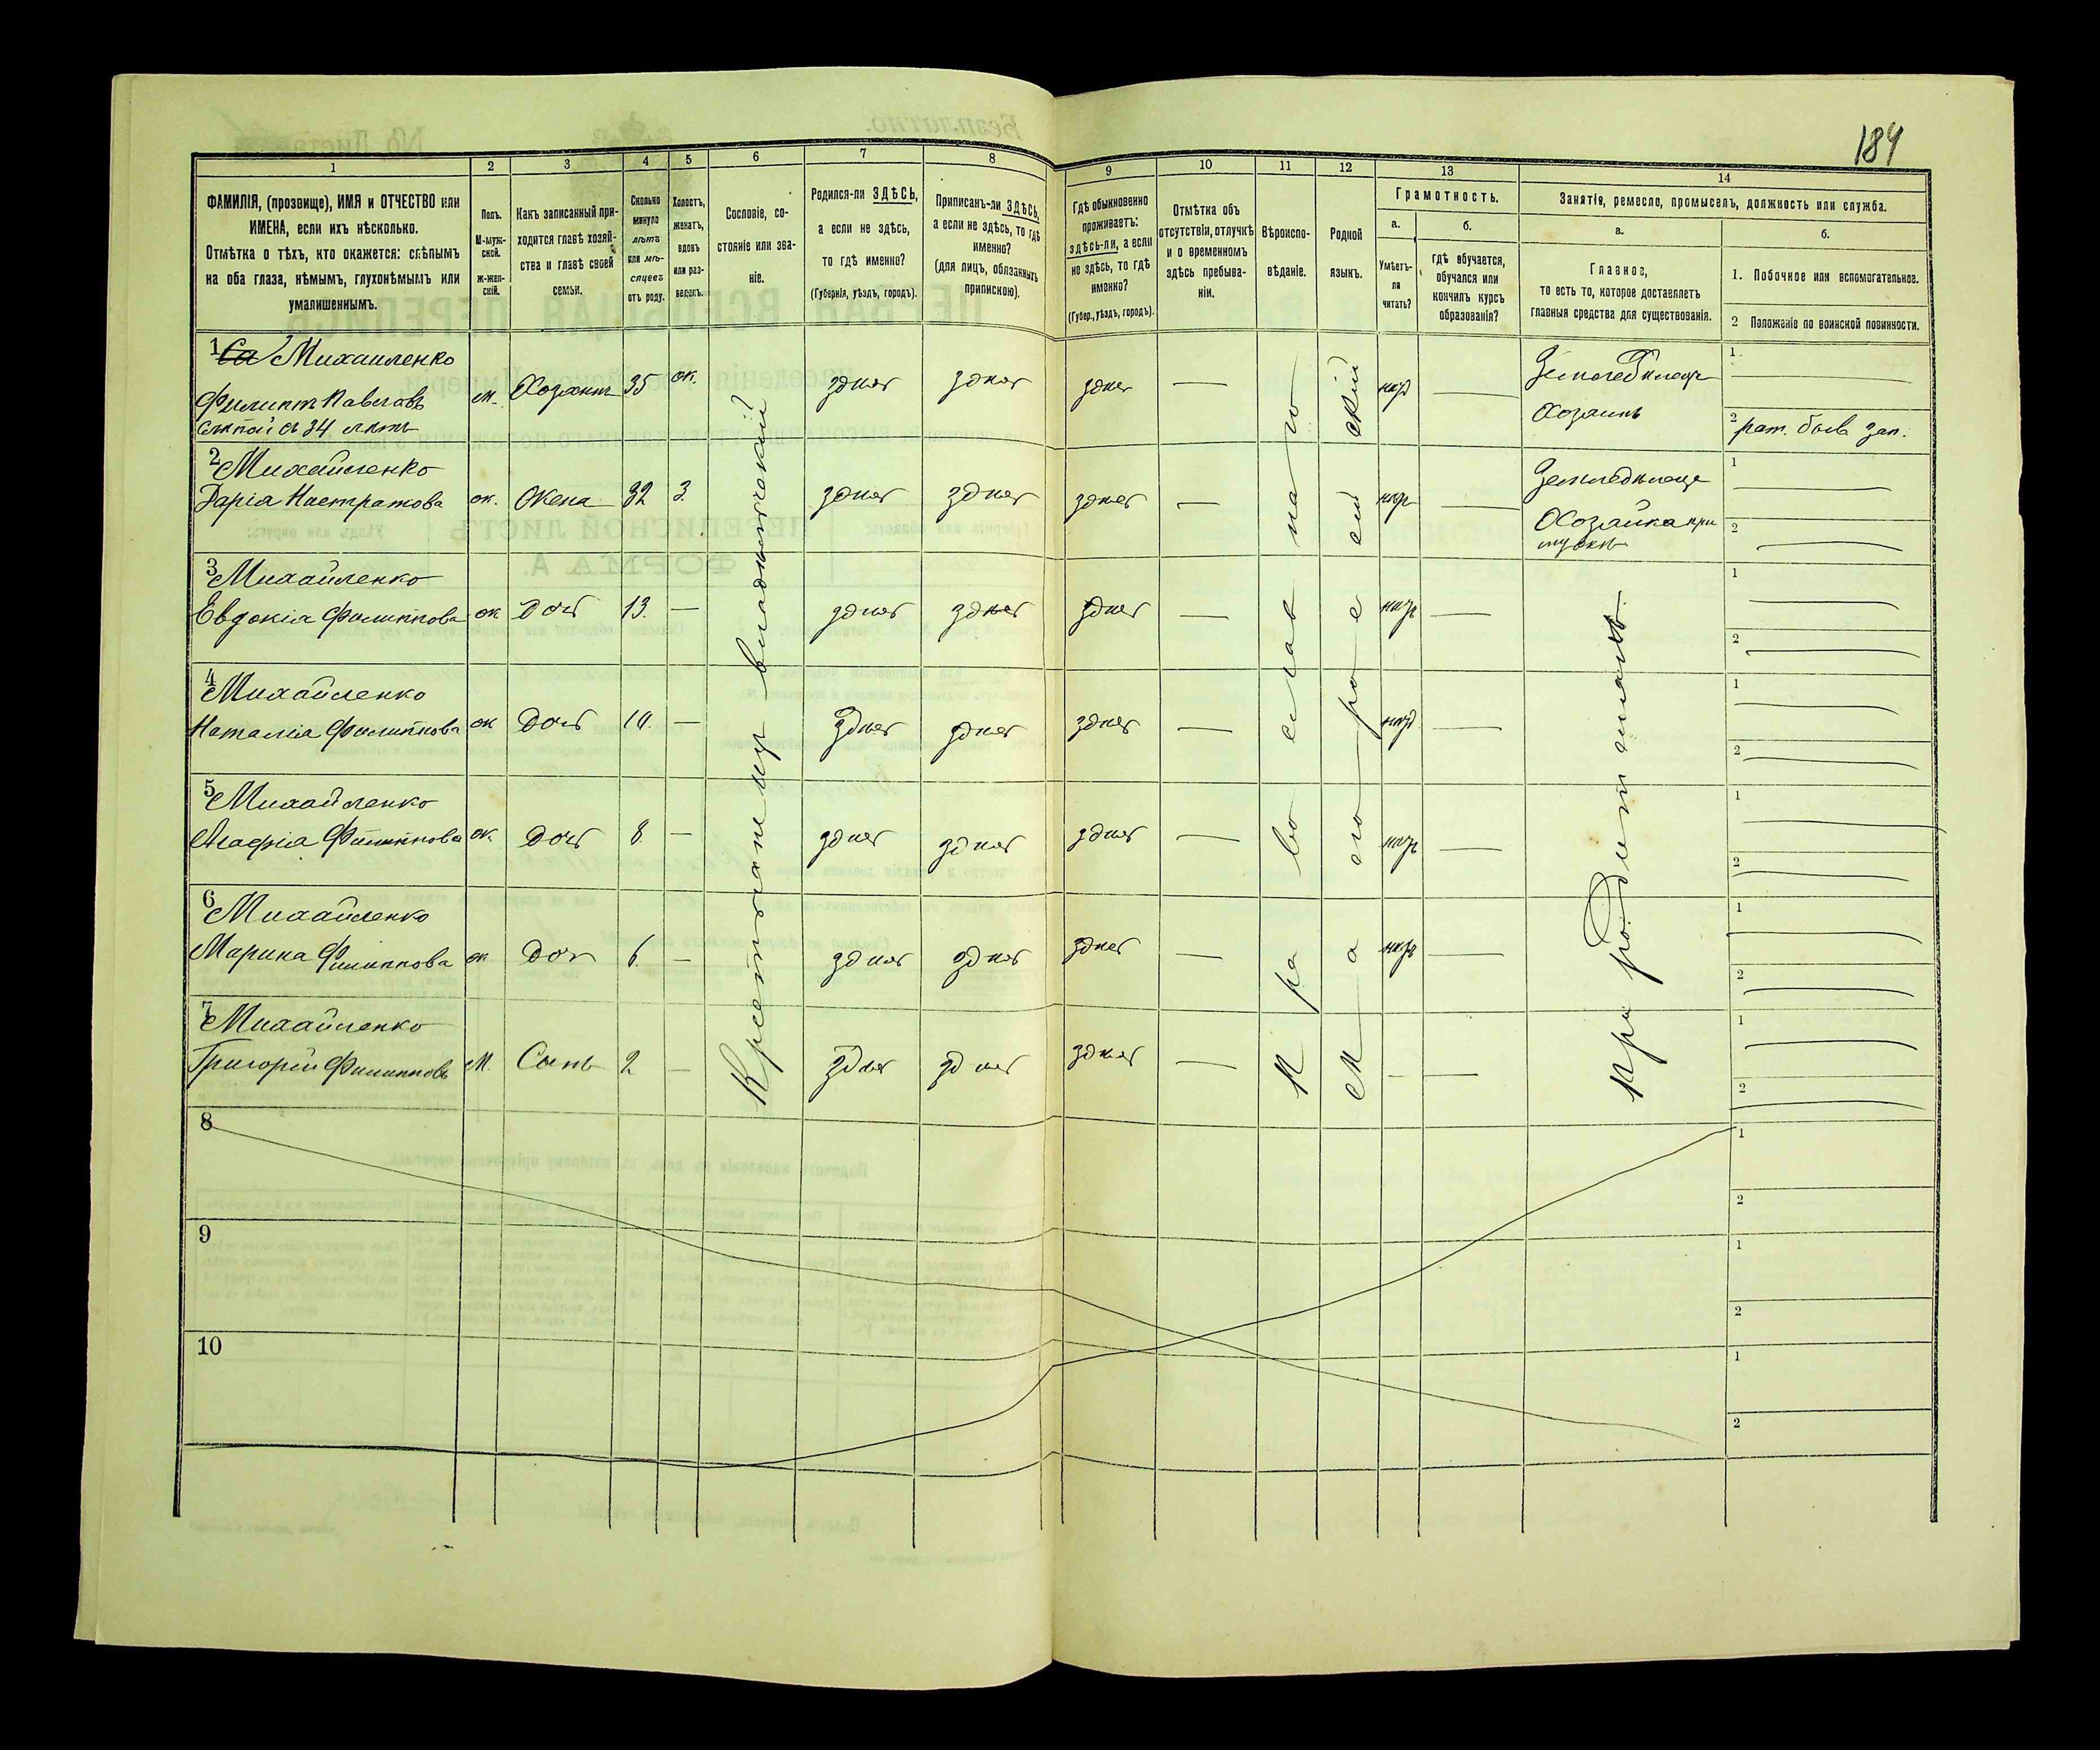 184
1 2 3 4 5 6 7 8 9 10 11 12 13 14
ФАМИЛІЯ, (прозвище), ИМЯ и ОТЧЕСТВО или
ИМЕНА, если ихъ нѣсколько.
Отмѣтка о тѣхъ, кто окажется: слѣпымъ
на оба глаза, нѣмымъ, глухонѣмымъ или
умалишеннымъ.
Полъ.
М-муж-
ской.
ж-жен-
скій.
Какъ записанный при-
ходится главѣ хозяй-
ства и главѣ своей
семьи.
Сколько
минуло
лѣтъ
или мѣ-
сяцевъ
отъ роду.
Холостъ,
женатъ,
вдовъ
или раз-
веденъ.
Сословіе, со-
стояніе или зва-
ніе.
Родился-ли ЗДѢСЬ,
а если не здѣсь,
то гдѣ именно?
(Губернія, уѣздъ, городъ).
Приписанъ-ли ЗДѢСЬ,
а если не здѣсь, то гдѣ
именно?
(для лицъ, обязанныхъ
припискою).
Гдѣ обыкновенно
проживаетъ:
здѣсь-ли, а если
не здѣсь, то гдѣ
именно?
(Губер., уѣздъ, городъ).
Отмѣтка объ
отсутствіи, отлучкѣ
и о временномъ
здѣсь пребыва-
ніи.
Вѣроиспо-
вѣданіе.
Родной
языкъ.
Грамотность.
а.
Умѣетъ-
ли
читать?
б.
гдѣ обучается,
обучался или
кончилъ курсъ
образованія?
Занятіе, ремесло, промыселъ, должность или служба.
а.
Главное,
то есть то, которое доставляетъ
главныя средства для существованія.
б.
1. Побочное или вспомогательное.
2 Положеніе по воинской повинности.
1 Михаиленко
Филиппъ Павловъ м. Хозяинъ 35 ж. здѣсь здѣсь здѣсь — — 
слѣпой съ 34 лѣтъ
Хозаинъ
1
2 рат.
2 Михайленко
Дарія ж. Жена 32 з. здѣсь здѣсь здѣсь — —
Хозайка при
1
2
3 Михайленко
Евдокія Филиппова ж Доч 13. — здѣсь здѣсь здѣсь — —
1
2
4 Михайленко
Наталіа Филиппова ж Доч — здѣсь здѣсь здѣсь — —
1
2
5 Михайленко
Агафіа Филиппова ж. Доч 8. — здѣсь здѣсь здѣсь — —
1
2
6 Михайленко
Марина Филиппова ж Доч 6. — здѣсь здѣсь здѣсь — —
1
2
7 Михайленко
Григорій Филипповъ М. Сынъ 2 — здѣсь здѣсь здѣсь — — —
1
2
Православнаго
Малоросейскій
При родителяхъ
8
1
2
9
1
2
10
1
2